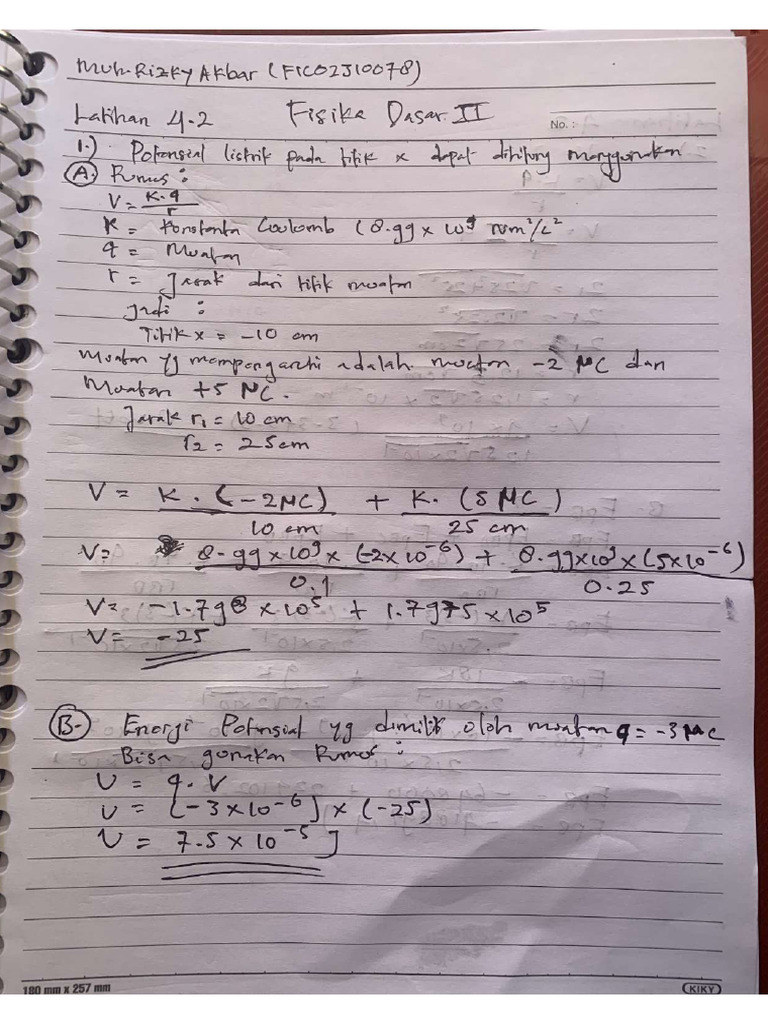 Muh. Rizky Akbar (F1C02310078)
Latihan 4.2 Fisika Dasar II
No. :
1.) Potensial listrik pada titik x dapat dihitung menggunakan
(A.) Rumus :
V = K.q / r
K = Konstanta Coulomb (8.99 x 10⁹ Nm²/C²
q = Muatan
r = Jarak dari titik muatan
Jadi :
Titik x = -10 cm
Muatan yg mempengaruhi adalah muatan -2 μC dan
Muatan +5 μC.
Jarak r₁ = 10 cm
r₂ = 25cm
V = K . (-2μC) / 10 cm + K. (5 μC) / 25 cm
V= 8.99 x 10⁹ x (-2x10⁻⁶) / 0.1 + 8.99x10⁹ x (5x10⁻⁶) / 0.25
V= -1.798 x 10⁵ + 1.7975 x 10⁵
V= -25
(B.) Energi Potensial yg dimilik oleh muatan q = -3 μC
Bisa gunakan Rumus :
U = q . V
U = (-3 x 10⁻⁶) x (-25)
U = 7.5 x 10⁻⁵ J
180 mm x 257 mm
KIKY